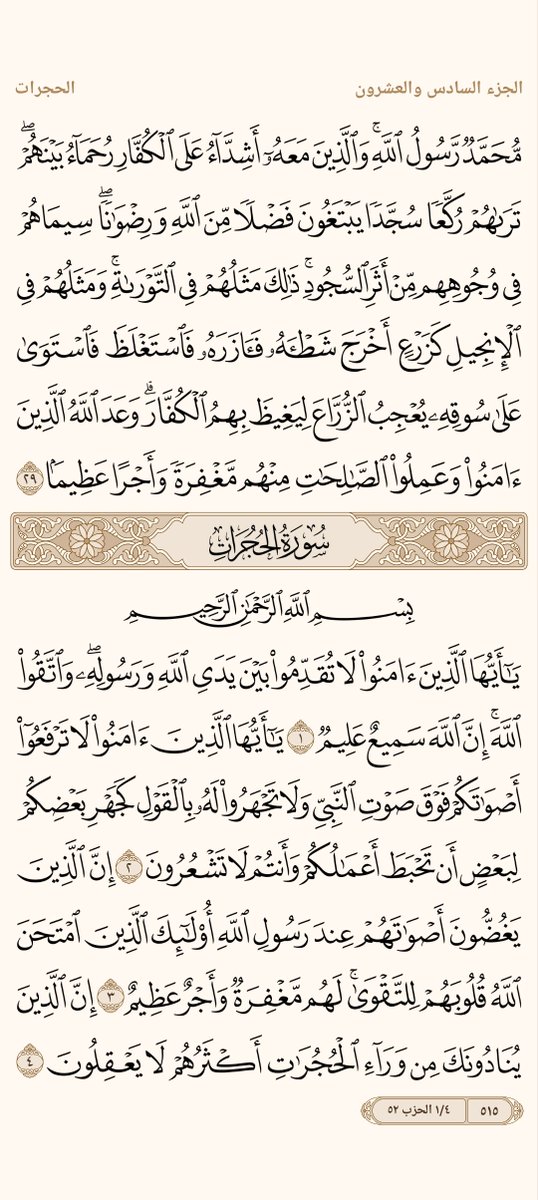 الجزء السادس والعشرون
الحجرات
مُّحَمَّدٌ رَّسُولُ ٱللَّهِۚ وَٱلَّذِينَ مَعَهُۥٓ أَشِدَّآءُ عَلَى ٱلۡكُفَّارِ رُحَمَآءُ بَيۡنَهُمۡۖ
تَرَىٰهُمۡ رُكَّعٗا سُجَّدٗا يَبۡتَغُونَ فَضۡلٗا مِّنَ ٱللَّهِ وَرِضۡوَٰنٗاۖ سِيمَاهُمۡ
فِي وُجُوهِهِم مِّنۡ أَثَرِ ٱلسُّجُودِۚ ذَٰلِكَ مَثَلُهُمۡ فِي ٱلتَّوۡرَىٰةِۚ وَمَثَلُهُمۡ فِي
ٱلۡإِنجِيلِ كَزَرۡعٍ أَخۡرَجَ شَطۡـَٔهُۥ فَـَٔازَرَهُۥ فَٱسۡتَغۡلَظَ فَٱسۡتَوَىٰ
عَلَىٰ سُوقِهِۦ يُعۡجِبُ ٱلزُّرَّاعَ لِيَغِيظَ بِهِمُ ٱلۡكُفَّارَۗ وَعَدَ ٱللَّهُ ٱلَّذِينَ
ءَامَنُواْ وَعَمِلُواْ ٱلصَّٰلِحَٰتِ مِنۡهُم مَّغۡفِرَةٗ وَأَجۡرًا عَظِيمَۢا ٢٩
سُورَةُ الحُجُرَاتِ
بِسۡمِ ٱللَّهِ ٱلرَّحۡمَٰنِ ٱلرَّحِيمِ
يَٰٓأَيُّهَا ٱلَّذِينَ ءَامَنُواْ لَا تُقَدِّمُواْ بَيۡنَ يَدَيِ ٱللَّهِ وَرَسُولِهِۦۖ وَٱتَّقُواْ
ٱللَّهَۚ إِنَّ ٱللَّهَ سَمِيعٌ عَلِيمٞ ١ يَٰٓأَيُّهَا ٱلَّذِينَ ءَامَنُواْ لَا تَرۡفَعُوٓاْ
أَصۡوَٰتَكُمۡ فَوۡقَ صَوۡتِ ٱلنَّبِيِّ وَلَا تَجۡهَرُواْ لَهُۥ بِٱلۡقَوۡلِ كَجَهۡرِ بَعۡضِكُمۡ
لِبَعۡضٍ أَن تَحۡبَطَ أَعۡمَٰلُكُمۡ وَأَنتُمۡ لَا تَشۡعُرُونَ ٢ إِنَّ ٱلَّذِينَ
يَغُضُّونَ أَصۡوَٰتَهُمۡ عِندَ رَسُولِ ٱللَّهِ أُوْلَٰٓئِكَ ٱلَّذِينَ ٱمۡتَحَنَ
ٱللَّهُ قُلُوبَهُمۡ لِلتَّقۡوَىٰۚ لَهُم مَّغۡفِرَةٞ وَأَجۡرٌ عَظِيمٌ ٣ إِنَّ ٱلَّذِينَ
يُنَادُونَكَ مِن وَرَآءِ ٱلۡحُجُرَٰتِ أَكۡثَرُهُمۡ لَا يَعۡقِلُونَ ٤
٥١٥
١/٤ الحزب ٥٢